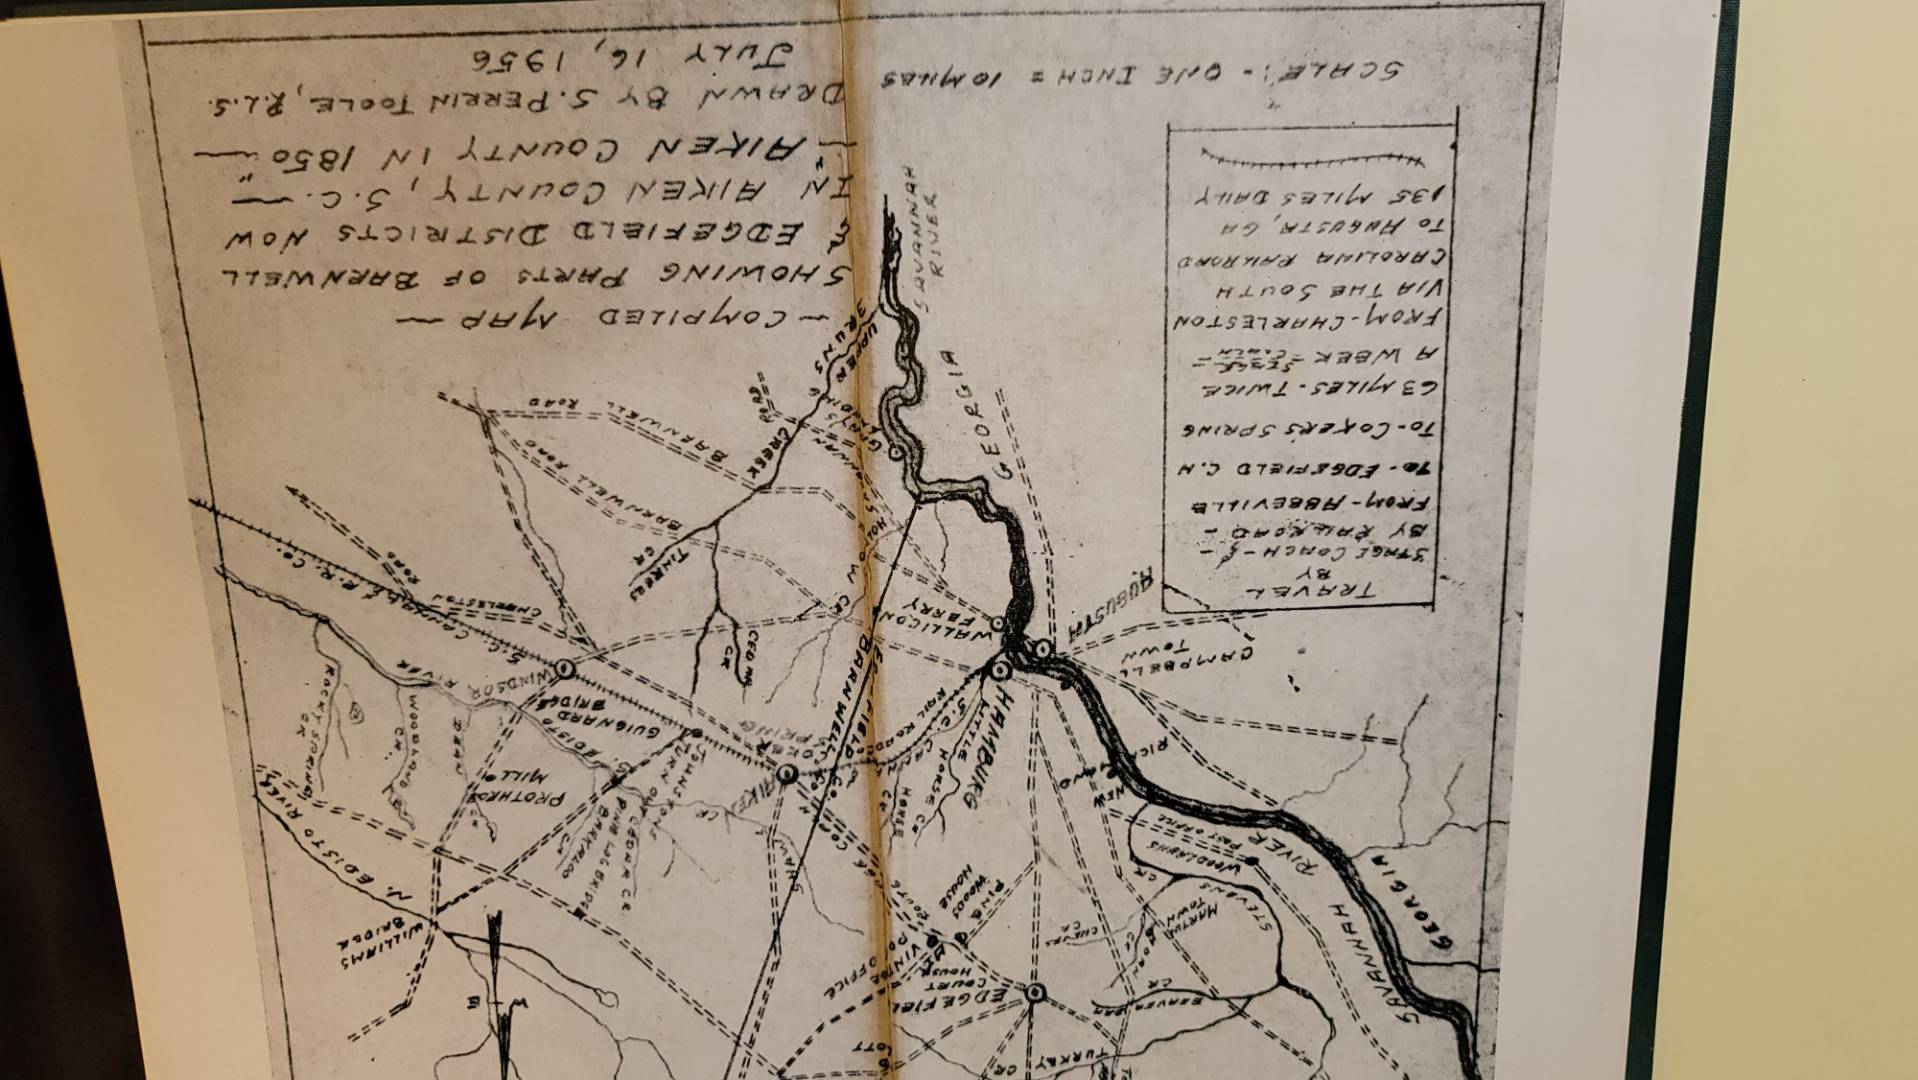 — COMPILED MAP —
SHOWING PARTS OF BARNWELL
& EDGEFIELD DISTRICTS NOW
IN AIKEN COUNTY, S.C. —
— "AIKEN COUNTY IN 1850" —
DRAWN BY S. PERRIN TOOLE, R.L.S.
JULY 16, 1956
SCALE:- ONE INCH = 10 MILES
TRAVEL
BY
STAGE COACH - & -
BY RAILROAD -
FROM - ABBEVILLE
TO - EDGEFIELD C.H
TO - COKERS SPRING
63 MILES - TWICE
A WEEK - STAGE COACH =
FROM - CHARLESTON
VIA THE SOUTH
CAROLINA RAILROAD
TO AUGUSTA, GA
135 MILES DAILY
TURKEY
CR
BEAVER DAM
CR
EDGEFIEL
COURT
HOUSE
W - E
VINTER
OFFICE
PINE
WOODS
HOUSE
CHEVES
CR
HORN
CR
MARTIN
TOWN
STEVENS
CR
WOODLAWN
POST OFFICE
SAVANNAH
RIVER
GEORGIA
WILLIAMS
BRIDGE
N. EDISTO RIVER
CEDAR CR.
PINE LOG BRIDGE
BARKALOO
CR
PROTHROS
MILL
DEAN
CR
WOODLAND
CR.
ROCKY SPRINGS
CR
SHAWS
CR
AIKEN
COKER
SPRING
JOHNSTONS
TURN OUT
GUIGNARD
BRIDGE
EDISTO
RIVER
WINDSOR
S.C. CANAL & R.R. CO.
CHARLESTON
ROAD
HORSE
CR
LITTLE HORSE CR
S.C. CAN &
RAIL ROAD
HAMBURG
NEW
RICHMOND
CAMPBELL
TOWN
AUGUSTA
WALLICON
FERRY
EDGEFIELD CO.
BARNWELL CO.
CEDAR
CR
HOLLOW CR
TINKERS
CR
BARNWELL ROAD
BARNWELL ROAD
SAVANNAH
ROAD
GRAYS
LANDING
UPPER
3 RUNS
CREEK
GEORGIA
SAVANNAH
RIVER